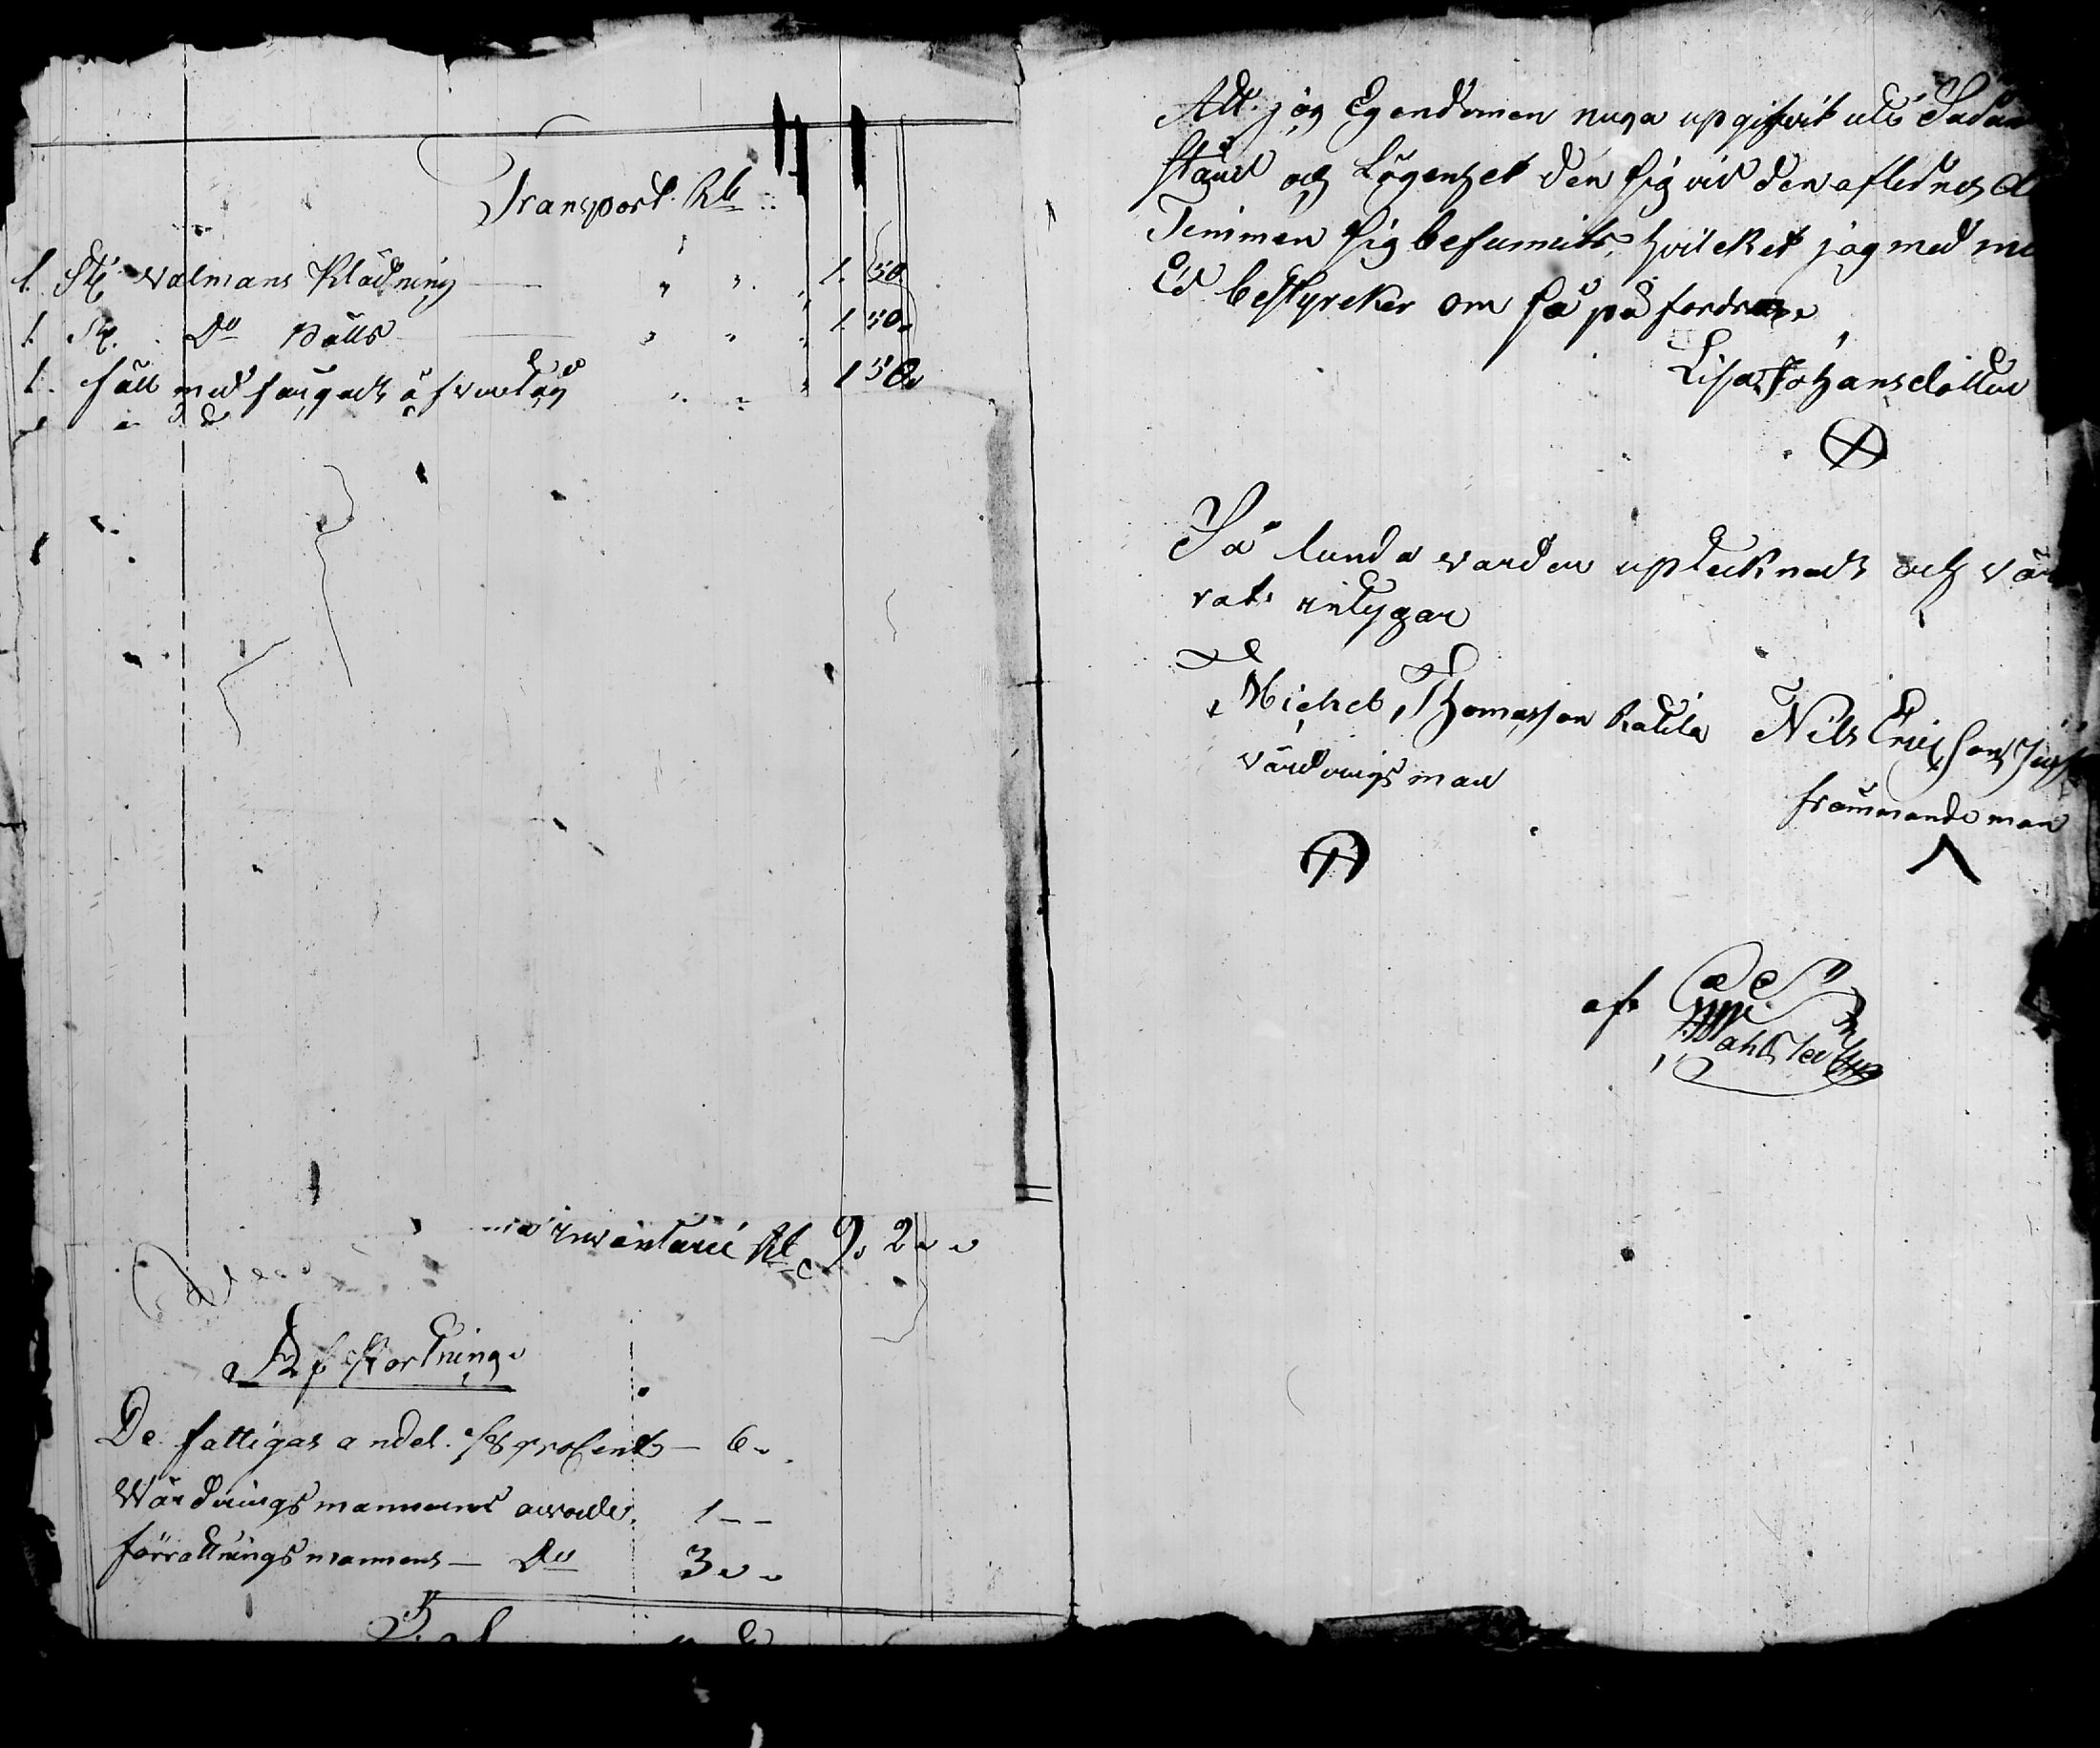 Transport Rb
1. St. walmans Klädning " " " 1. 50.
1. St. Do Pälls " " " 1. 50.
1. fäll med " " " 1 50.
inventarii Rb 9. 2
Afkortning.
De fattigas andel procent — 6 "
Värderingsmannens arvode. 1 – –
förrättningsmannens — Do 3 " "
Att jag Egendomen noga upgifvit uti Sådan
stånd och Lägenhet den sig vid den aflednes
Timmen sig befunnits, hvilcket jag med
Ed bestyrcker om så på fordras
Lisa Johansdotter
Så lunda warder uptecknadt och vär
rat intygar
Michel Thomasson Nils Ericsson
värderingsman
främmande man
af